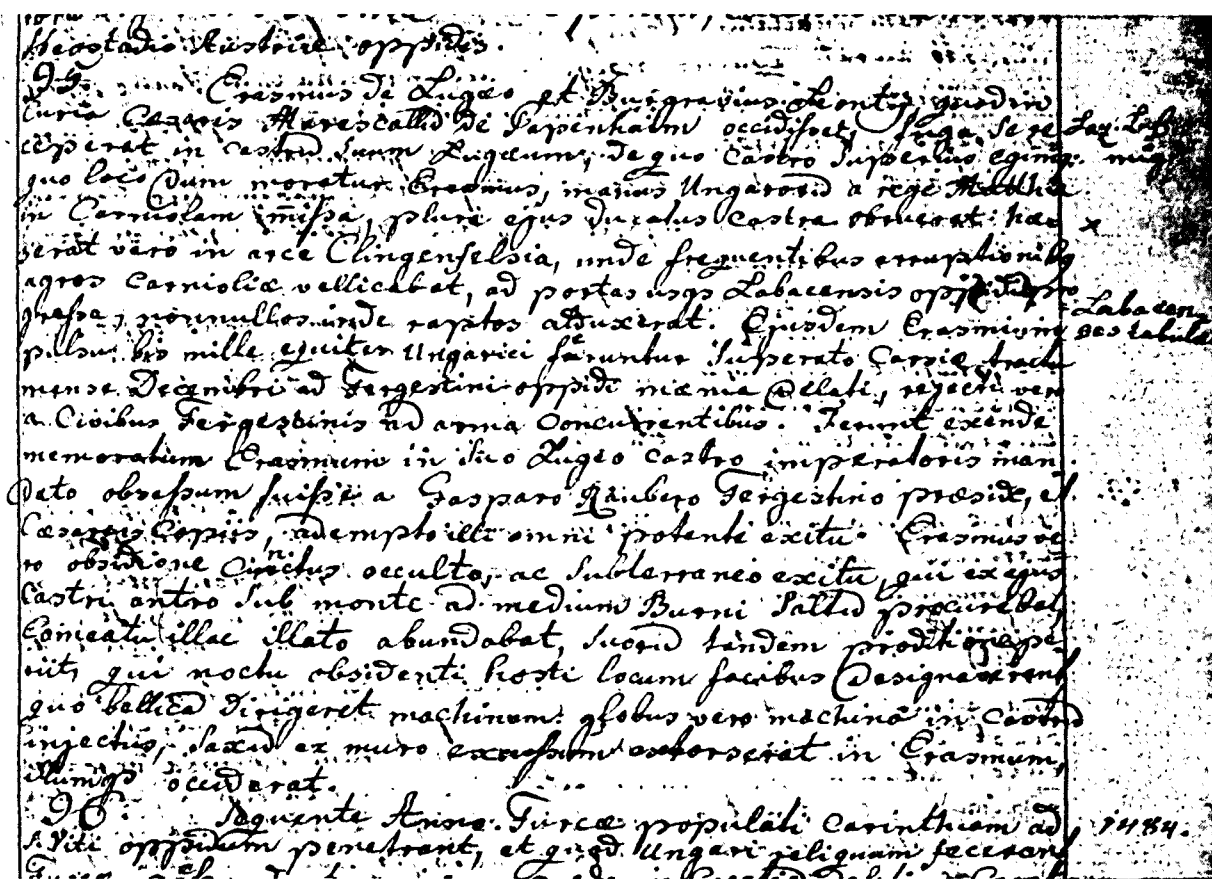 Neostadio Austriæ oppidis.
95. Erasmus de Lugeo et Burgravius Leontij quod in
Curia Cæsaris Marescallũ de Papenhaim occidisset, fuga se re Laz. Lab.
ceperat in castrũ suum Lugeum, de quo castro superius egimq.
quo loco dum moratur Erasmus, manus Ungarorũ a rege Mathia
in Carniolam missa, plura ejus ducatus castra obruerat: hæ x
serat vero in arce Clingenfelsia, unde frequentibus erruptionibq
agros Carnioliæ vellicabat, ad portas usqs Labacensis oppidi pro
gressa, nonnullos inde raptos adduxerat. Ejusdem Erasmi im Labacen
pulsu bis mille equites Ungarici feruntur superato Carsiæ tractu ses tabulæ
mense Decembri ad Tergestini oppidi mænia delati, rejecti vero
a Civibus Tergestinis ad arma concurrentibus. Ferunt exinde
memoratum Erasmum in suo Lugeo castro imperatoris man
dato obsessum fuisse a Gasparo Raubero Tergestino præside, et
Cæsareis Copiis, adempto illi omni potenti exitu. Erasmus ve
ro obsidione cinctus occulto, ac subterraneo exitu, qui ex ejus
castri antro sub monte ad medium Burni saltũ procurebat,
Comeatu illac illato abundabat, suorũ tandem proditione pe
riit, qui noctu obsidenti hosti locum facibus designaverant
quo bellicã dirigeret machinam: globus vero machinâ in castrũ
injectus, saxũ ex muro excussum extorserat in Erasmum,
illumqs occiderat.
96. Sequente Anno Turcæ populati Carinthiam ad 1484.
S. Viti oppidum penetrant, et quod Ungari reliquam fecerant